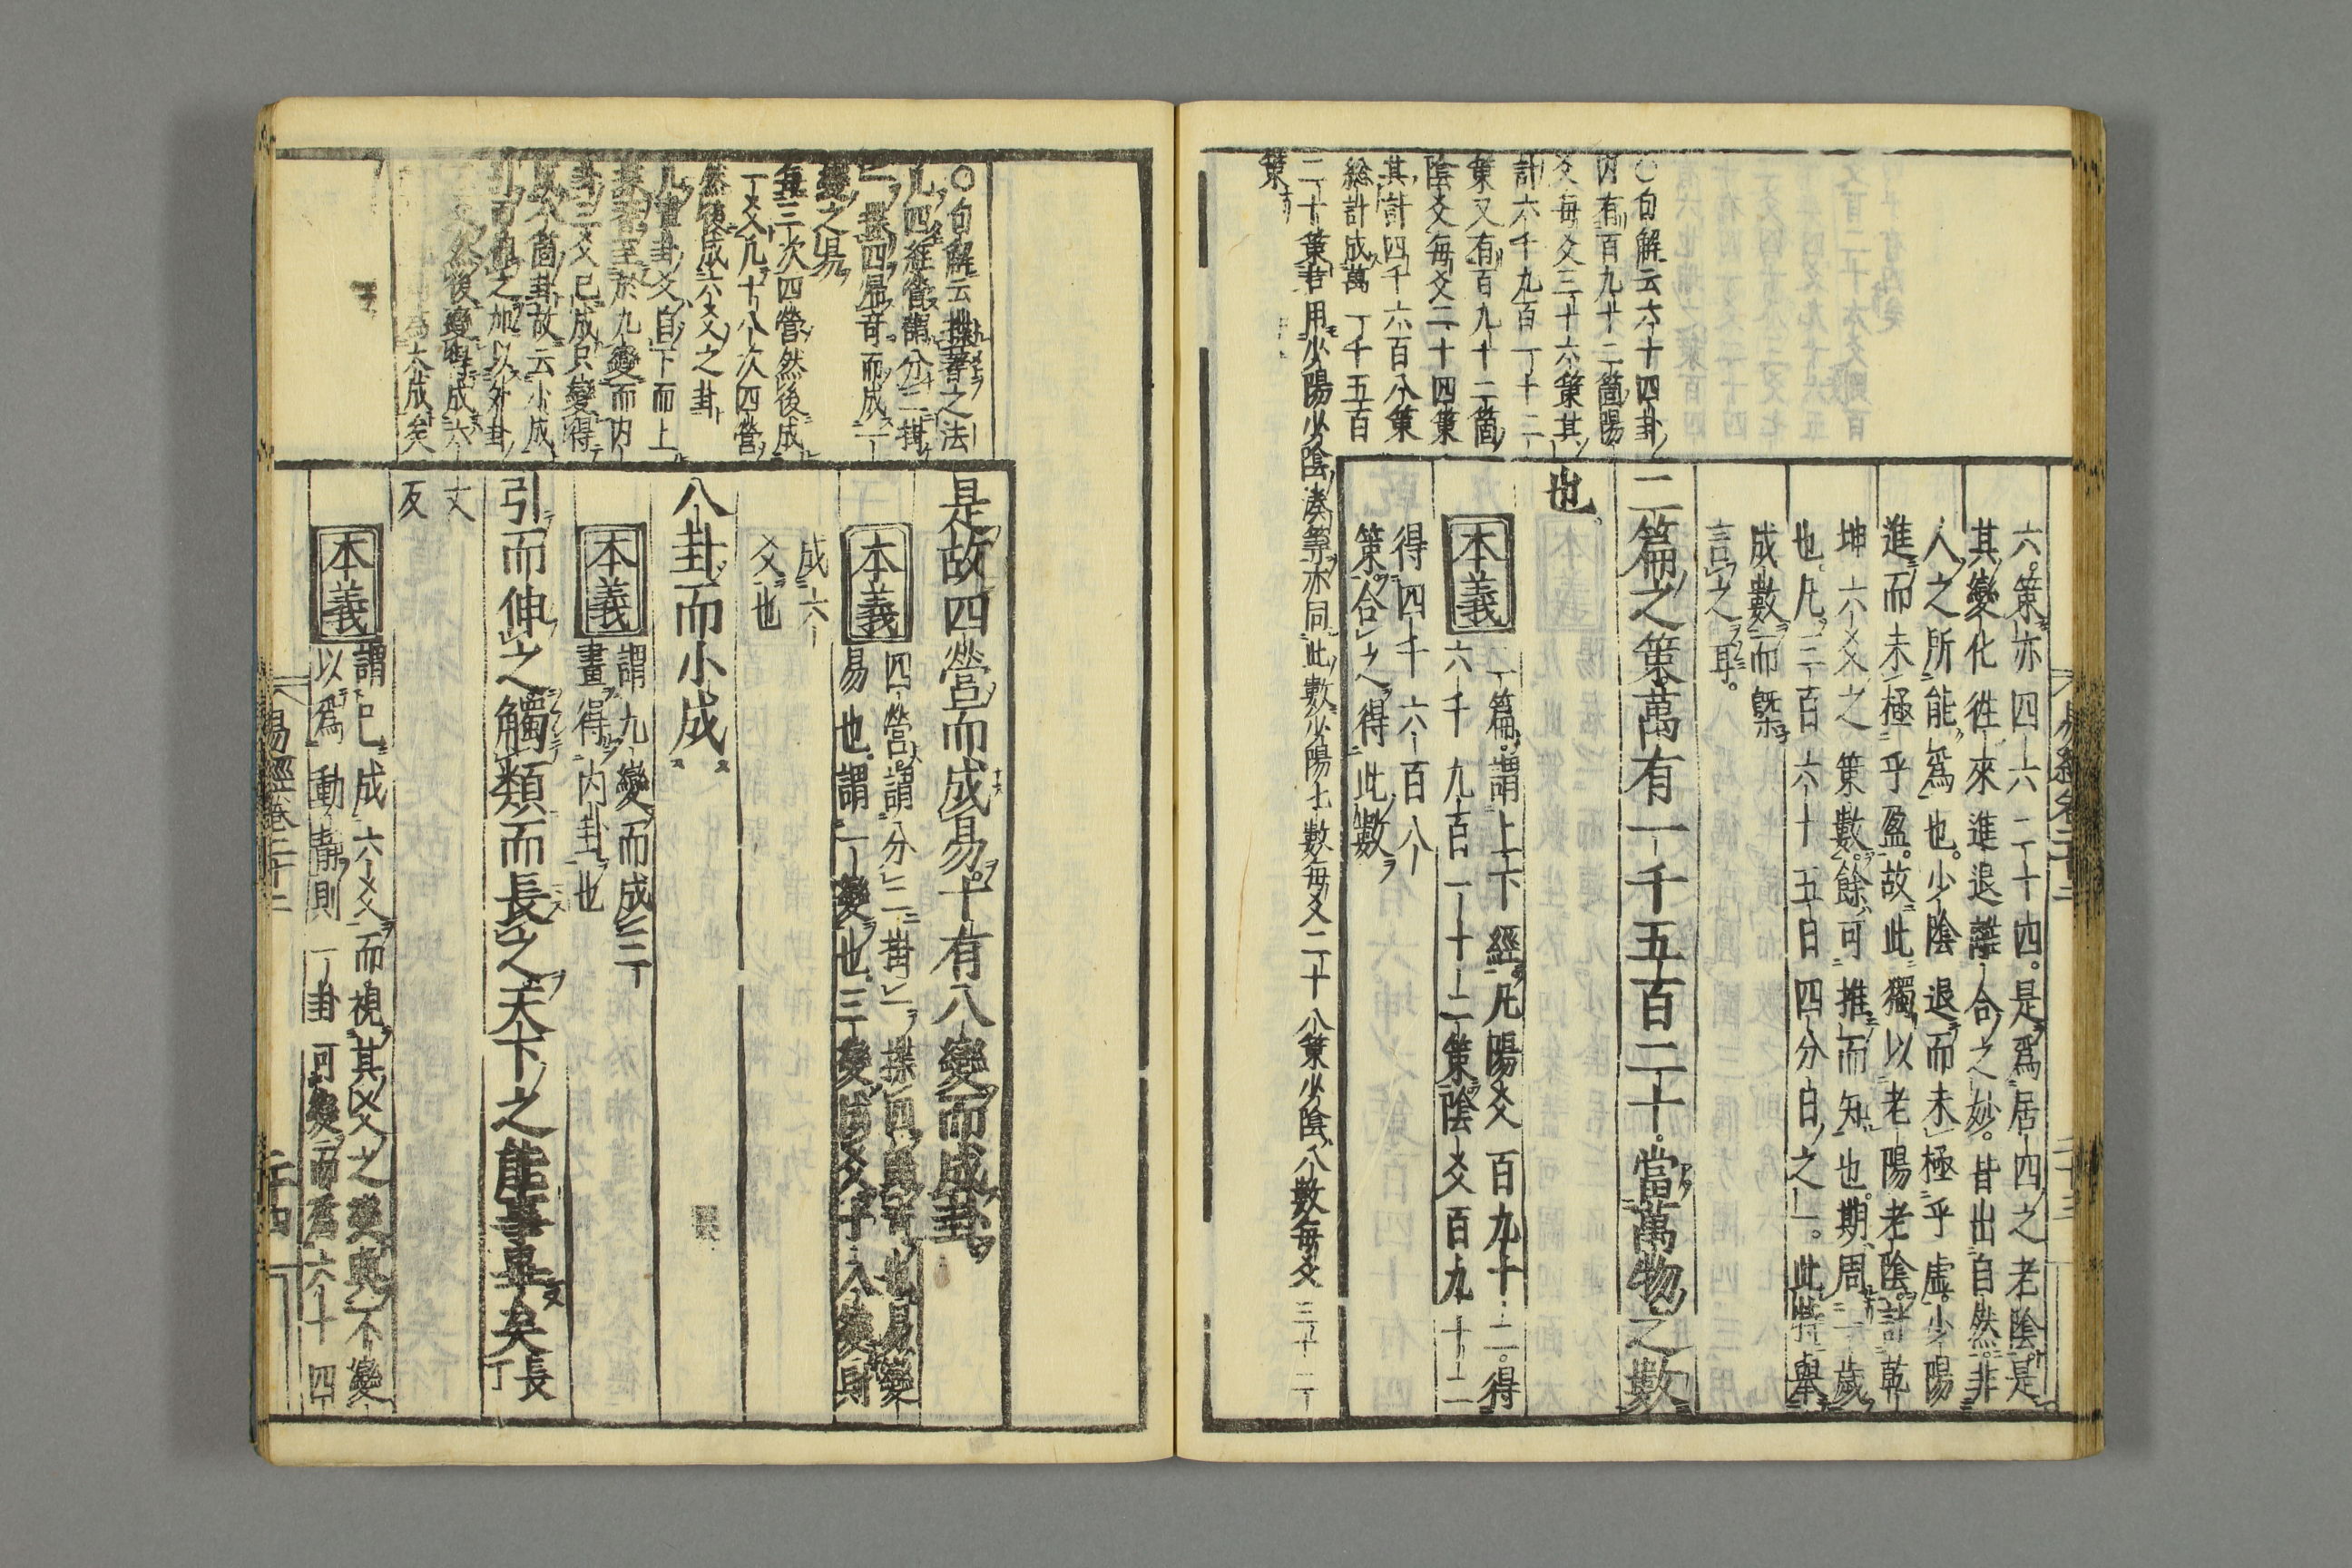 六策亦四六二十四是爲居四之老陰是
其變化徃來進退離合之妙皆出自然非
人之所能爲也少陰退而未極乎虚少陽
進而未極乎盈故此獨以老陽老陰計乾
坤六爻之策數餘可推而知也期周一歳
也凡三百六十五日四分日之一此特舉
成數而槩
言之耳
二篇之策萬有一千五百二十當萬物之數
也
本義
二篇謂上下經凡陽爻百九十二得
六千九百一十二策陰爻百九十二
得四千六百八
策合之得此數
○句解云六十四卦
内有百九十二箇陽
爻每爻三十六策其
計六千九百一十二
策又有百九十二箇
陰爻每爻二十四策
其計四千六百八策
総計成萬一千五百
二十策若用少陽少陰湊筭亦同此數少陽七數每爻二十八策少陰八數每爻三十二
策
易經卷二十二
二十三
是故四營而成易十有八變而成卦
本義
四營謂分二掛一揲四歸奇也易變
易也謂一變也三變成爻十八變則
成六
爻也
八卦而小成
本義
謂九變而成三
畫得内卦也
引而伸之觸類而長之天下之能事畢矣長
丈
反
本義
謂已成六爻而視其爻之變與不變
以爲動靜則一卦可變而爲六十四
○句解云揲蓍之法
凡四経營謂分二掛
一揲四歸奇而成一
變之易
每三次四營然後成
一爻凡十八次四營
然後成六爻之卦
凡畫卦爻自下而上
揲蓍至於九變而内
卦三爻已成只變得
八箇卦故云小成
引而伸之加以外卦
然後變成六
爲大成矣
易經卷二十二
二十四